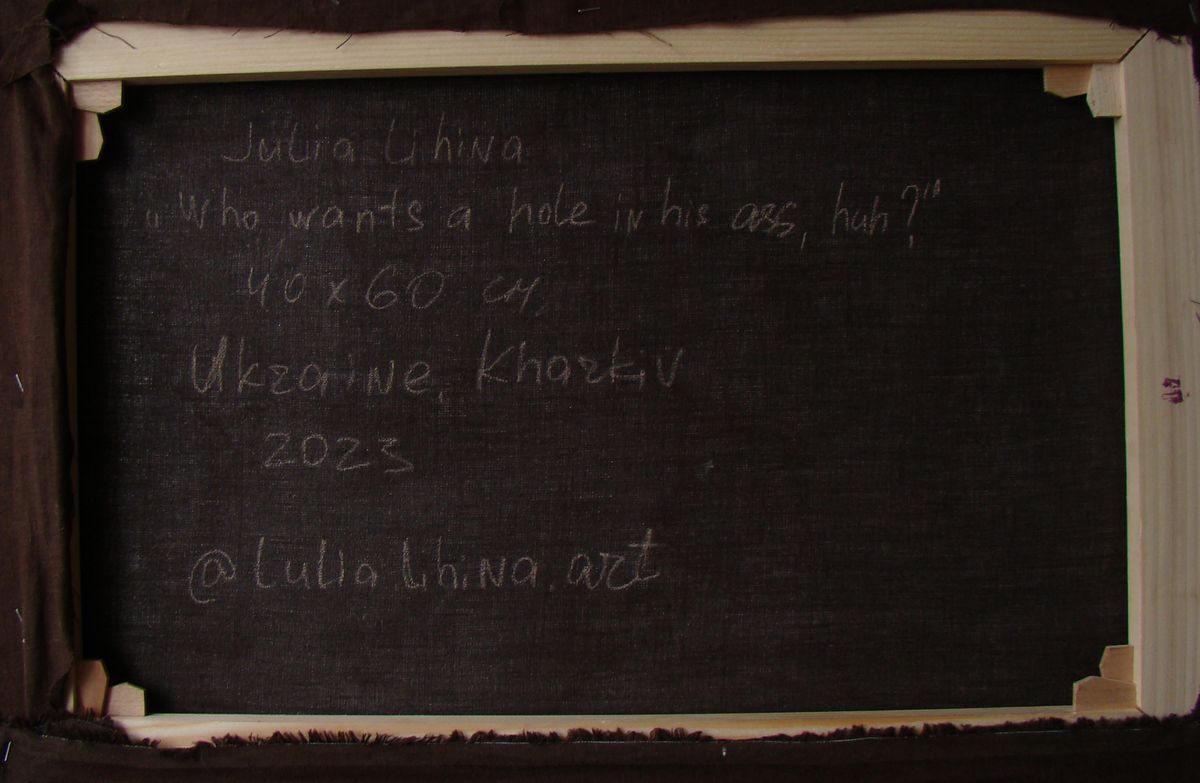 Julia Lihina
„Who wants a hole in his ass, huh?"
40 x 60 см,
Ukraine, Kharkiv
2023
@ lulia lihina.art